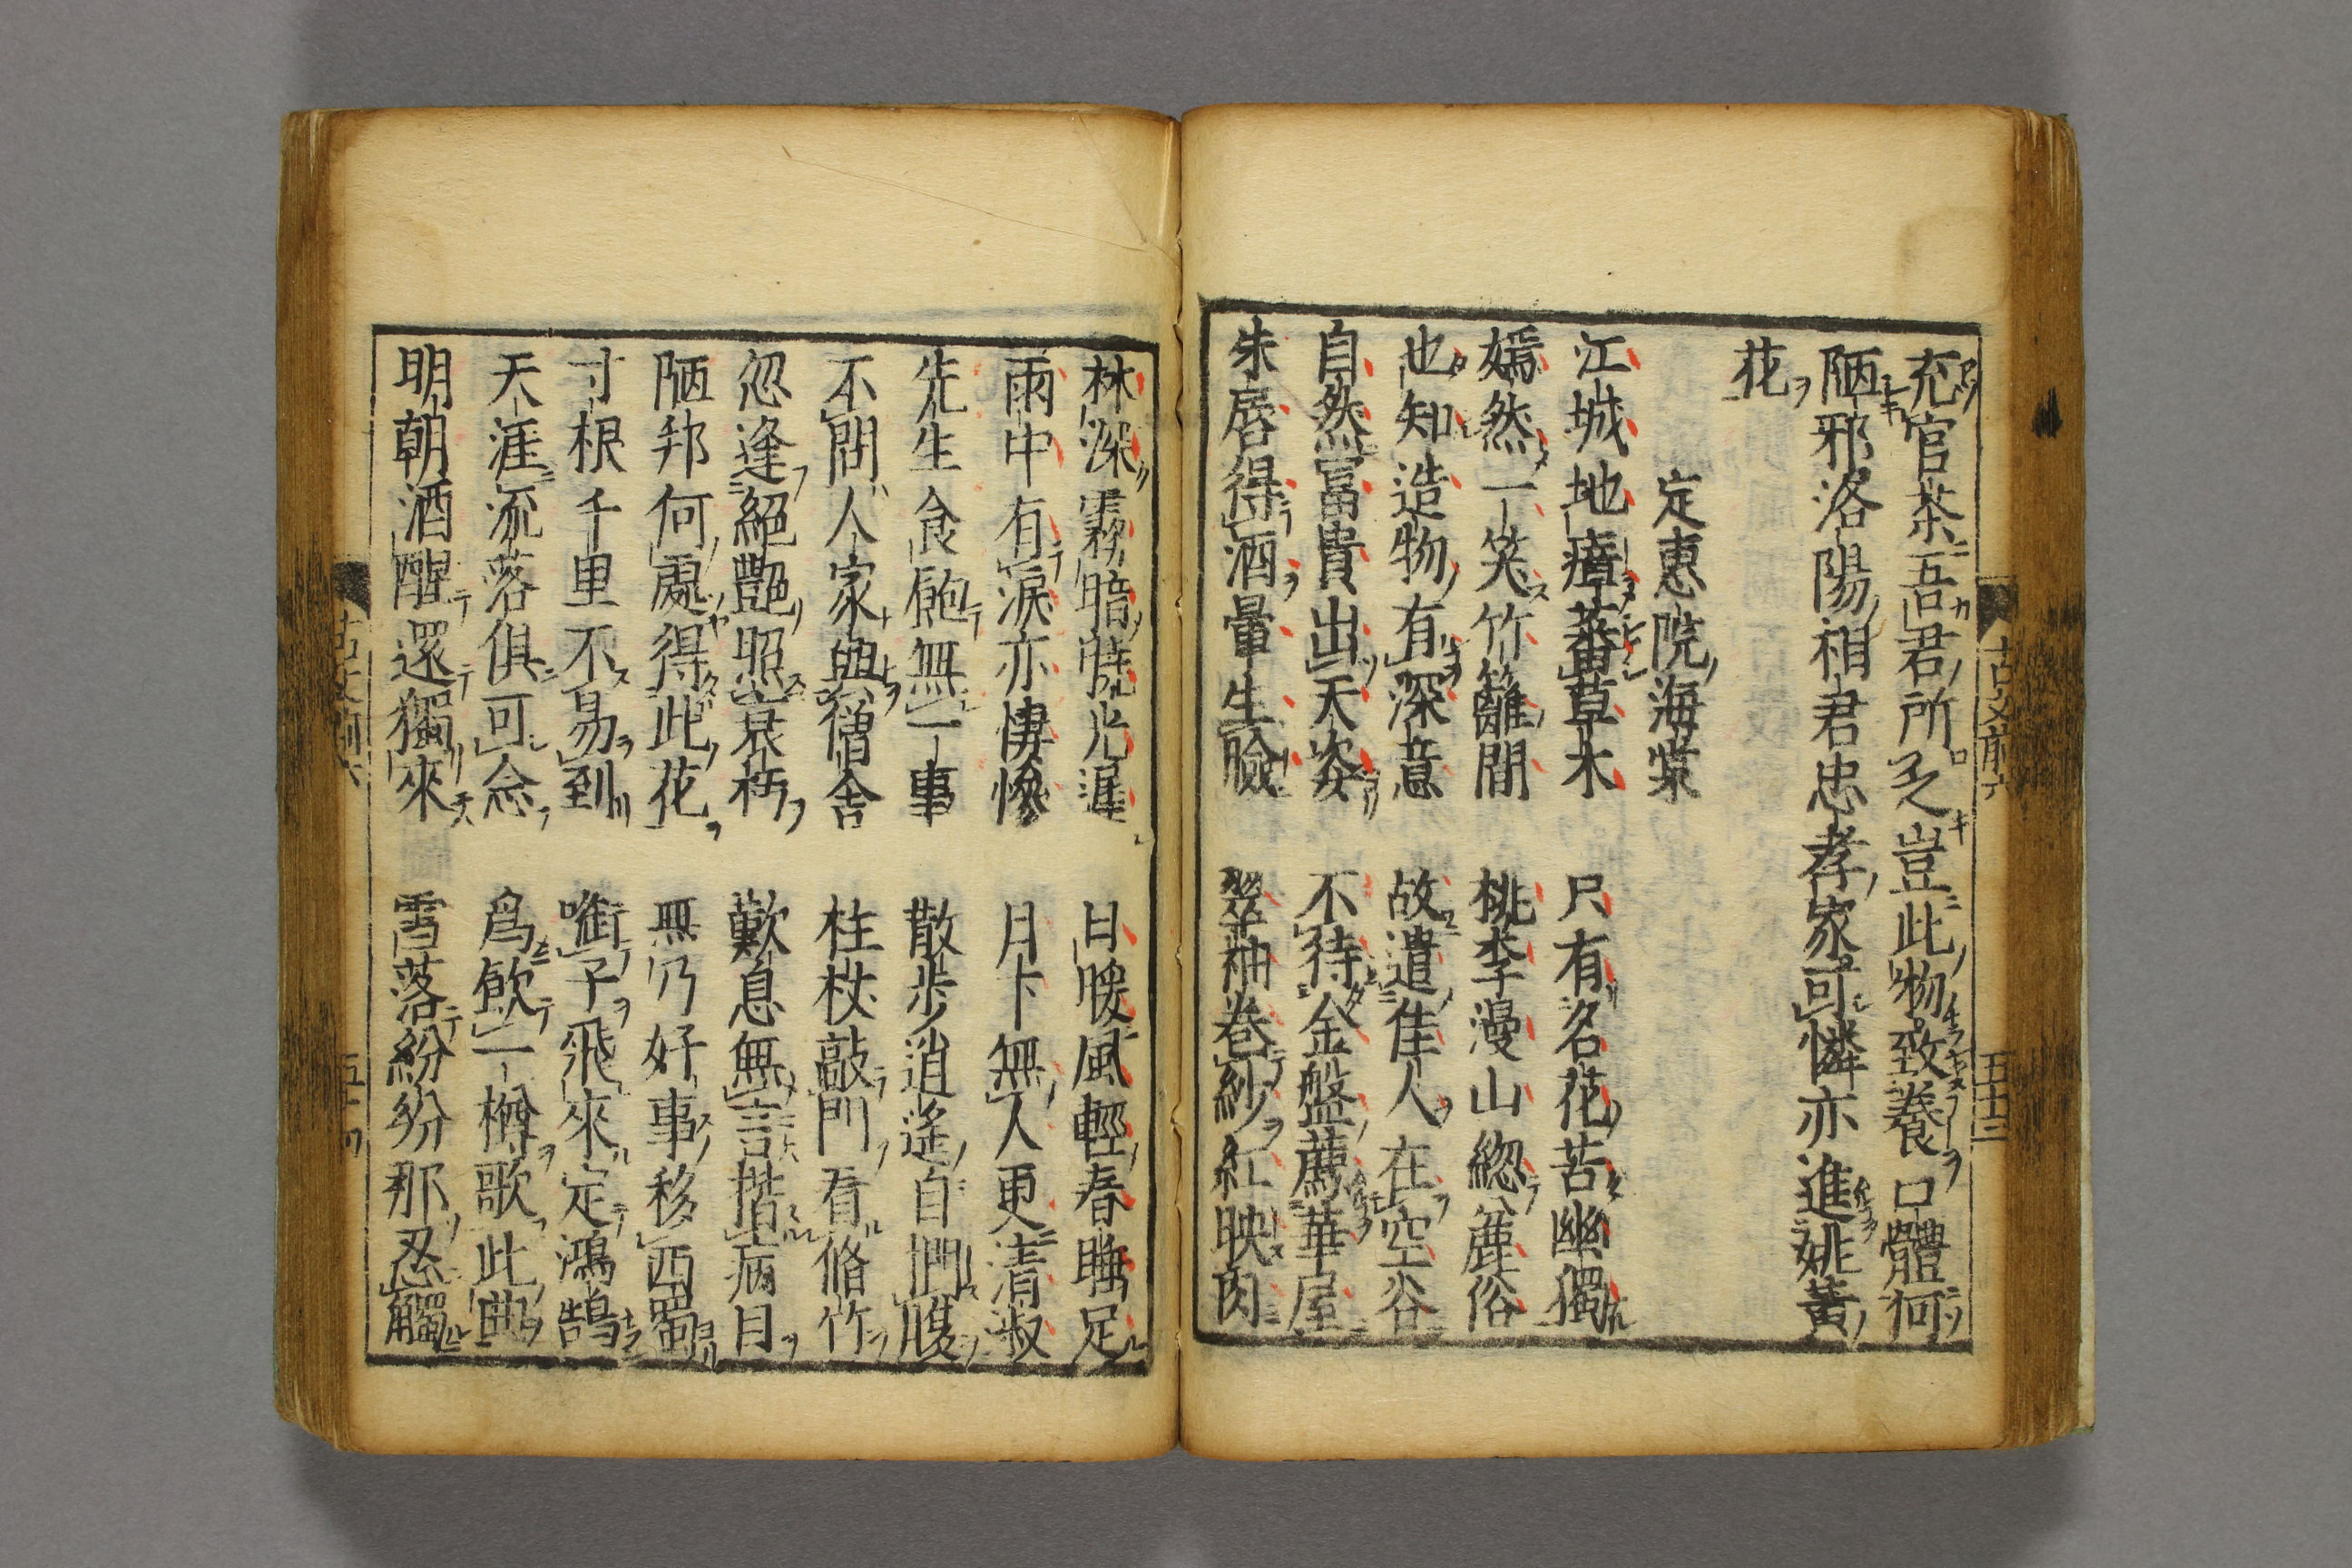 充官茶吾君所乏豈此物致養口體何
陋邪洛陽相君忠孝家可憐亦進姚黃
花
定惠院海棠
江城地瘴蕃草木 只有名花苦幽獨
嫣然一笑竹籬間 桃李漫山緫麁俗
也知造物有深意 故遣佳人在空谷
自然冨貴出天姿 不待金盤薦華屋
朱唇得酒暈生臉 翠袖卷紗紅映肉
林深霧暗曉光遲 日暖風輕春睡足
雨中有淚亦悽慘 月下無人更清淑
先生食飽無一事 散步逍遙自捫腹
不問人家與僧舍 柱杖敲門看脩竹
忽逢絕艷照衰朽 歎息無言揩病目
陋邦何處得此花 無乃好事移西蜀
寸根千里不易到 啣子飛來定鴻鵠
天涯流落俱可念 爲飲一樽歌此曲
明朝酒醒還獨來 雪落紛紛那忍觸
古文前六
五十三